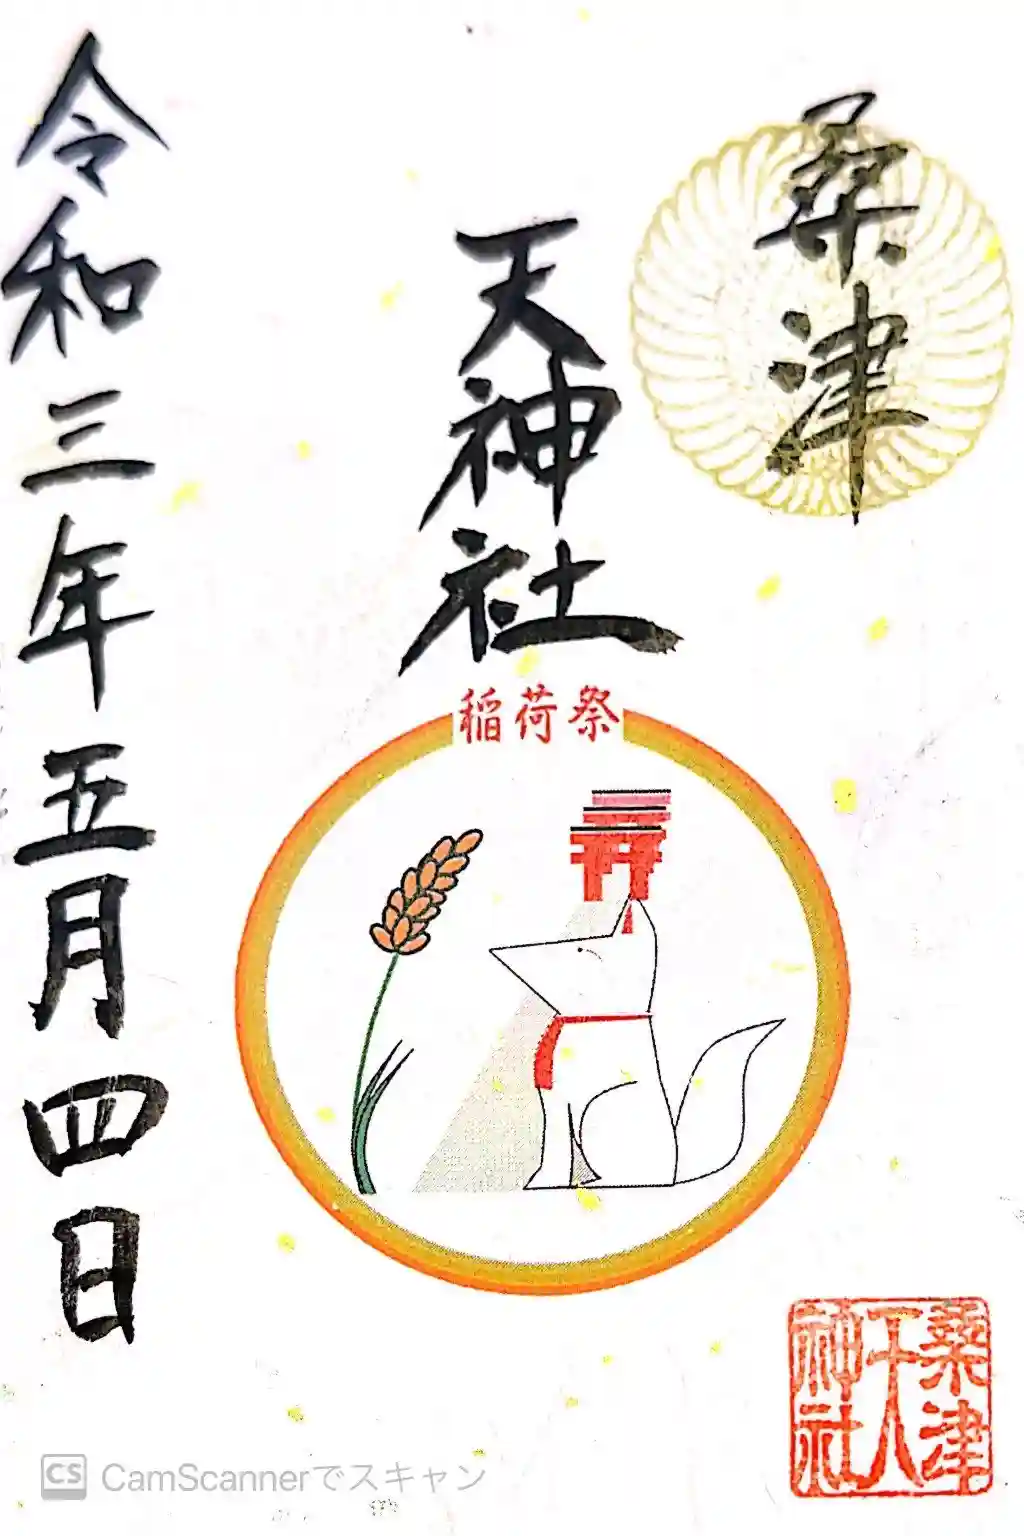 桑津
天神社
稲荷祭
令和三年五月四日
桑津
天
神社
CS CamScannerでスキャン